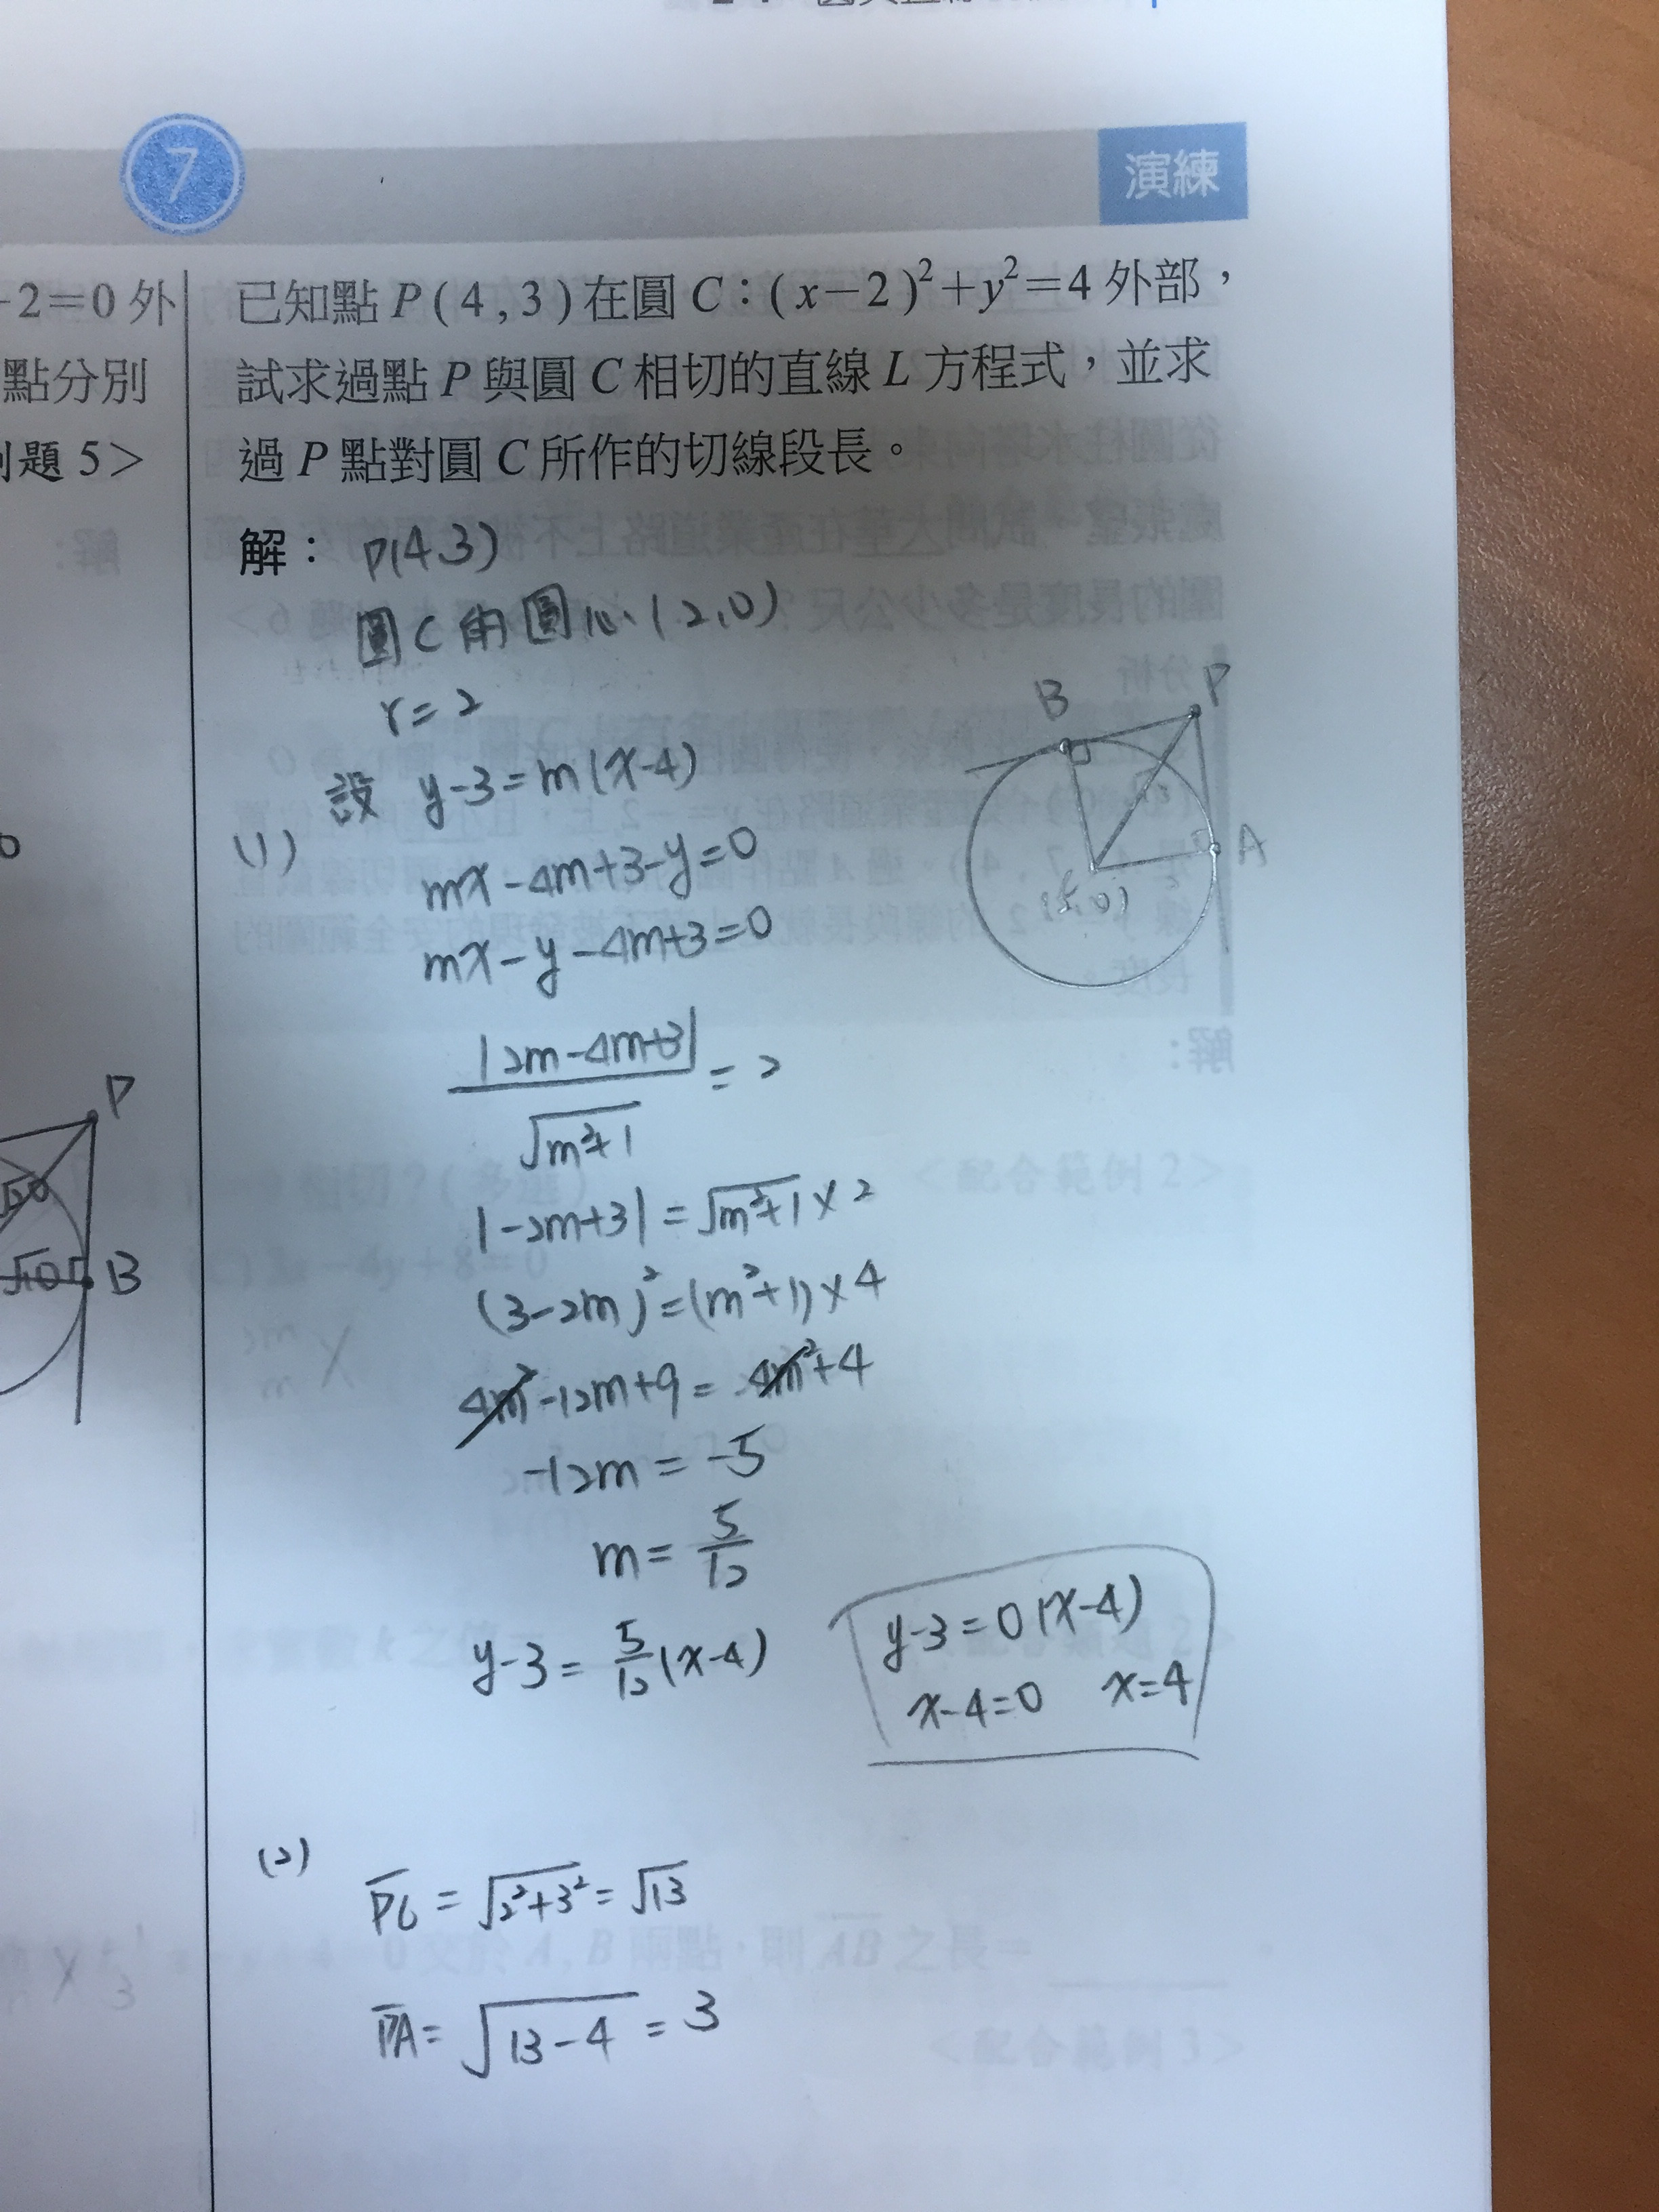 7
演練
-2=0 外
點分別
題 5>
已知點 P ( 4 , 3 ) 在圓 C：( x－2 )²＋y²＝4 外部，
試求過點 P 與圓 C 相切的直線 L 方程式，並求
過 P 點對圓 C 所作的切線段長。
解：P(4,3)
圓C 圓心(2,0)
r=2
設 y-3=m(x-4)
(1)
mx-4m+3-y=0
mx-y-4m+3=0
|2m-4m+3| / √m²+1 = 2
|-2m+3|=√m²+1 × 2
(3-2m)²=(m²+1)×4
4m²-12m+9=4m²+4
-12m=-5
m=5/12
y-3=5/12(x-4)
y-3=0(x-4)
x-4=0 x=4
(2)
PC=√2²+3²=√13
PA=√13-4=3
B
P
A
P
B